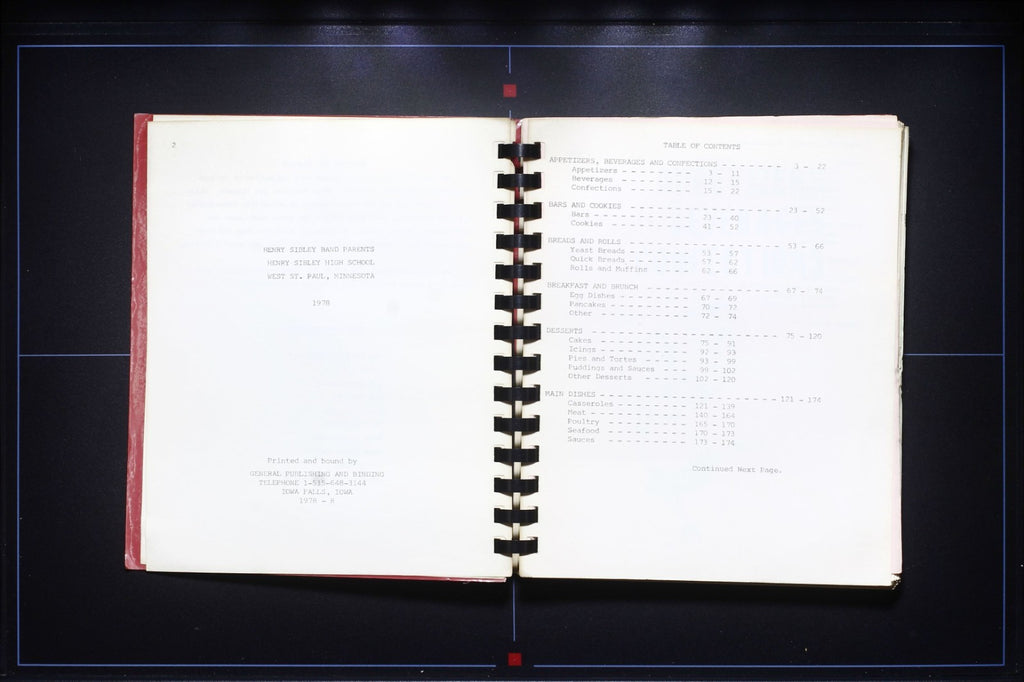 2
HENRY SIBLEY BAND PARENTS
HENRY SIBLEY HIGH SCHOOL
WEST ST. PAUL, MINNESOTA
1978
Printed and bound by
GENERAL PUBLISHING AND BINDING
TELEPHONE 1-515-648-3144
IOWA FALLS, IOWA
1978 - 8
TABLE OF CONTENTS
APPETIZERS, BEVERAGES AND CONFECTIONS - - - - - - - - 3 - 22
Appetizers - - - - - - - - - - 3 - 11
Beverages - - - - - - - - - - 12 - 15
Confections - - - - - - - - - 15 - 22
BARS AND COOKIES - - - - - - - - - - - - - - - - - - 23 - 52
Bars - - - - - - - - - - - - - 23 - 40
Cookies - - - - - - - - - - - 41 - 52
BREADS AND ROLLS - - - - - - - - - - - - - - - - - - 53 - 66
Yeast Breads - - - - - - - - - 53 - 57
Quick Breads - - - - - - - - - 57 - 62
Rolls and Muffins - - - - - - 62 - 66
BREAKFAST AND BRUNCH - - - - - - - - - - - - - - - - 67 - 74
Egg Dishes - - - - - - - - - - 67 - 69
Pancakes - - - - - - - - - - - 70 - 72
Other - - - - - - - - - - - - 72 - 74
DESSERTS - - - - - - - - - - - - - - - - - - - - - - 75 - 120
Cakes - - - - - - - - - - - - 75 - 91
Icings - - - - - - - - - - - - 92 - 93
Pies and Tortes - - - - - - - 93 - 99
Puddings and Sauces - - - - - 99 - 102
Other Desserts - - - - - - - - 102 - 120
MAIN DISHES - - - - - - - - - - - - - - - - - - - - - 121 - 174
Casseroles - - - - - - - - - - 121 - 139
Meat - - - - - - - - - - - - - 140 - 164
Poultry - - - - - - - - - - - 165 - 170
Seafood - - - - - - - - - - - 170 - 173
Sauces - - - - - - - - - - - - 173 - 174
Continued Next Page.